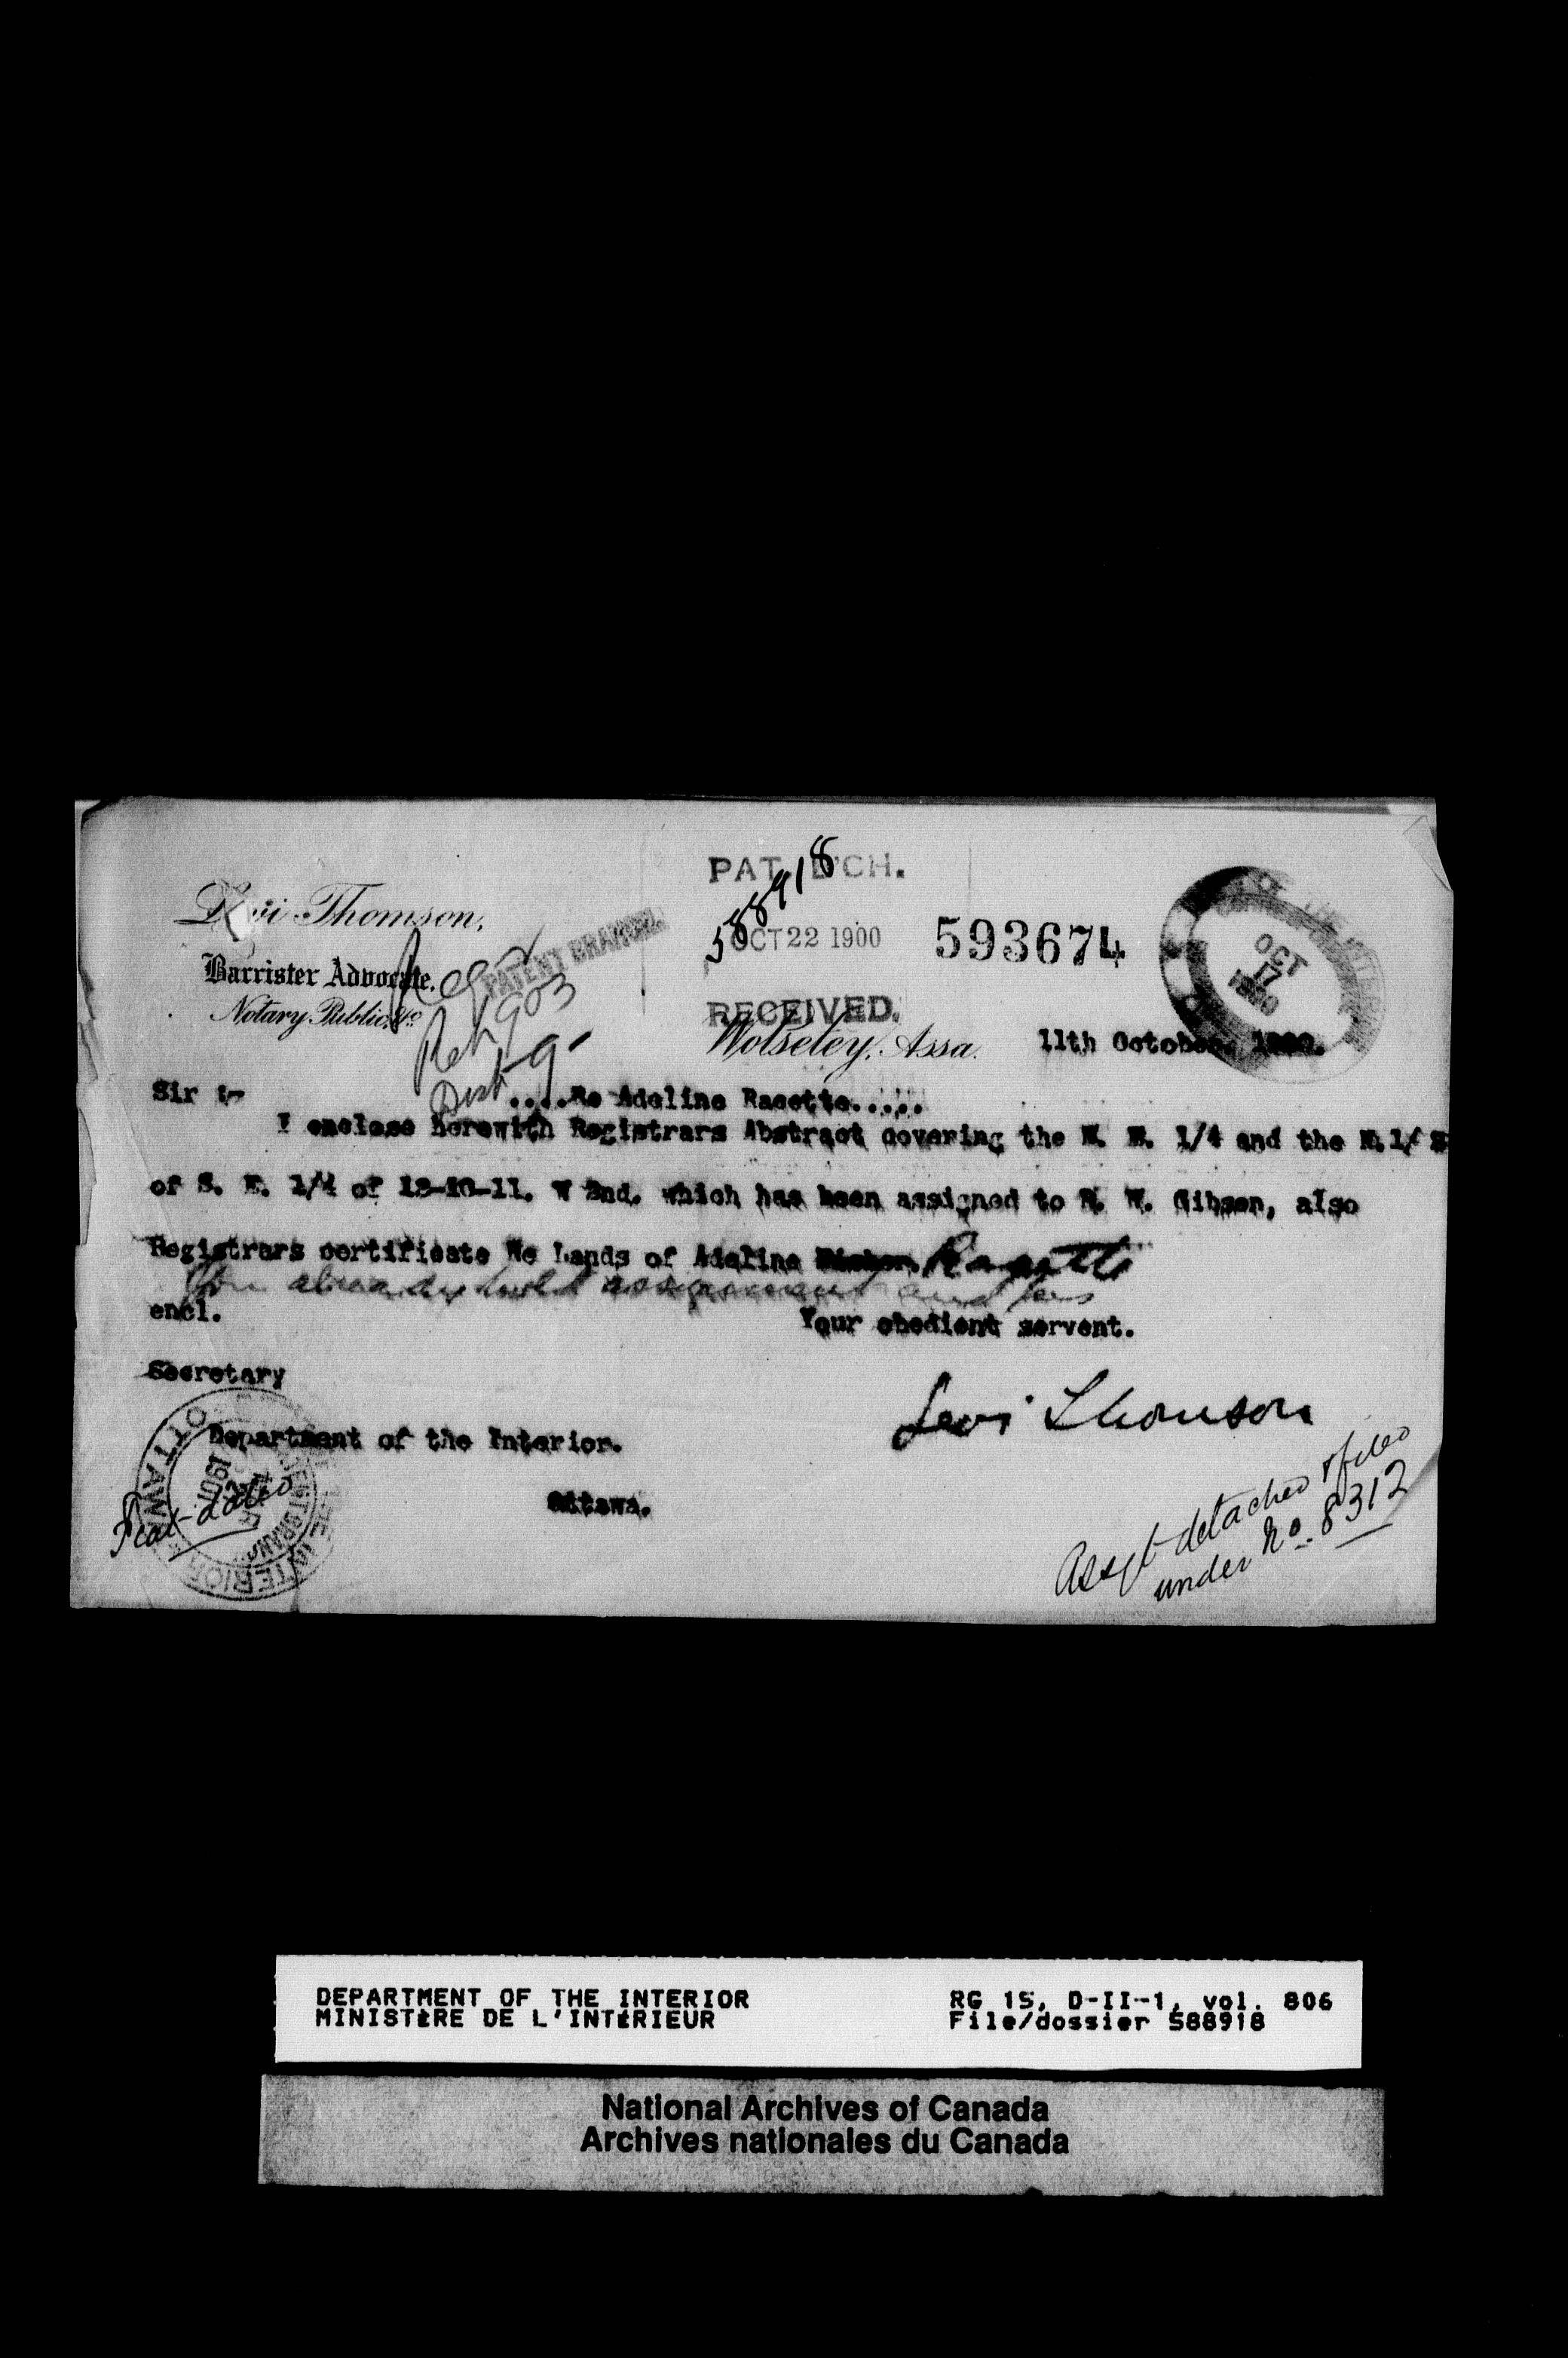 Levi Thomson,
Barrister Advocate,
Notary Public, &c.
PATENT BRANCH.
PAT. B'CH.
588918
OCT 22 1900
RECEIVED.
593674
OCT
17
1900
Wolseley, Assa. 11th October, 1900.
Sir :-
....Re Adeline Racette.....
I enclose herewith Registrars Abstract covering the N. E. 1/4 and the N.1/2
of S. E. 1/4 of 12-10-11. W 2nd. which has been assigned to R. W. Gibson, also
Registrars certificate Re Lands of Adeline Racette
You already hold assignment and fees
encl.
Your obedient servent.
Secretary
Levi Thomson
Department of the Interior.
Ottawa.
Assgt detached & filed
under No. 8312
DEPARTMENT OF THE INTERIOR
MINISTÈRE DE L'INTÉRIEUR
RG 15, D-II-1, vol. 806
File/dossier 588918
National Archives of Canada
Archives nationales du Canada